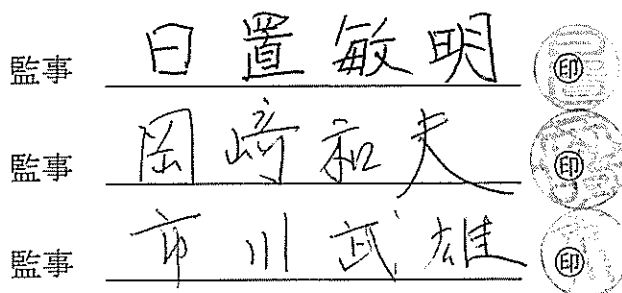 監事 日置敏明 印
監事 岡﨑和夫 印
監事 市川武雄 印